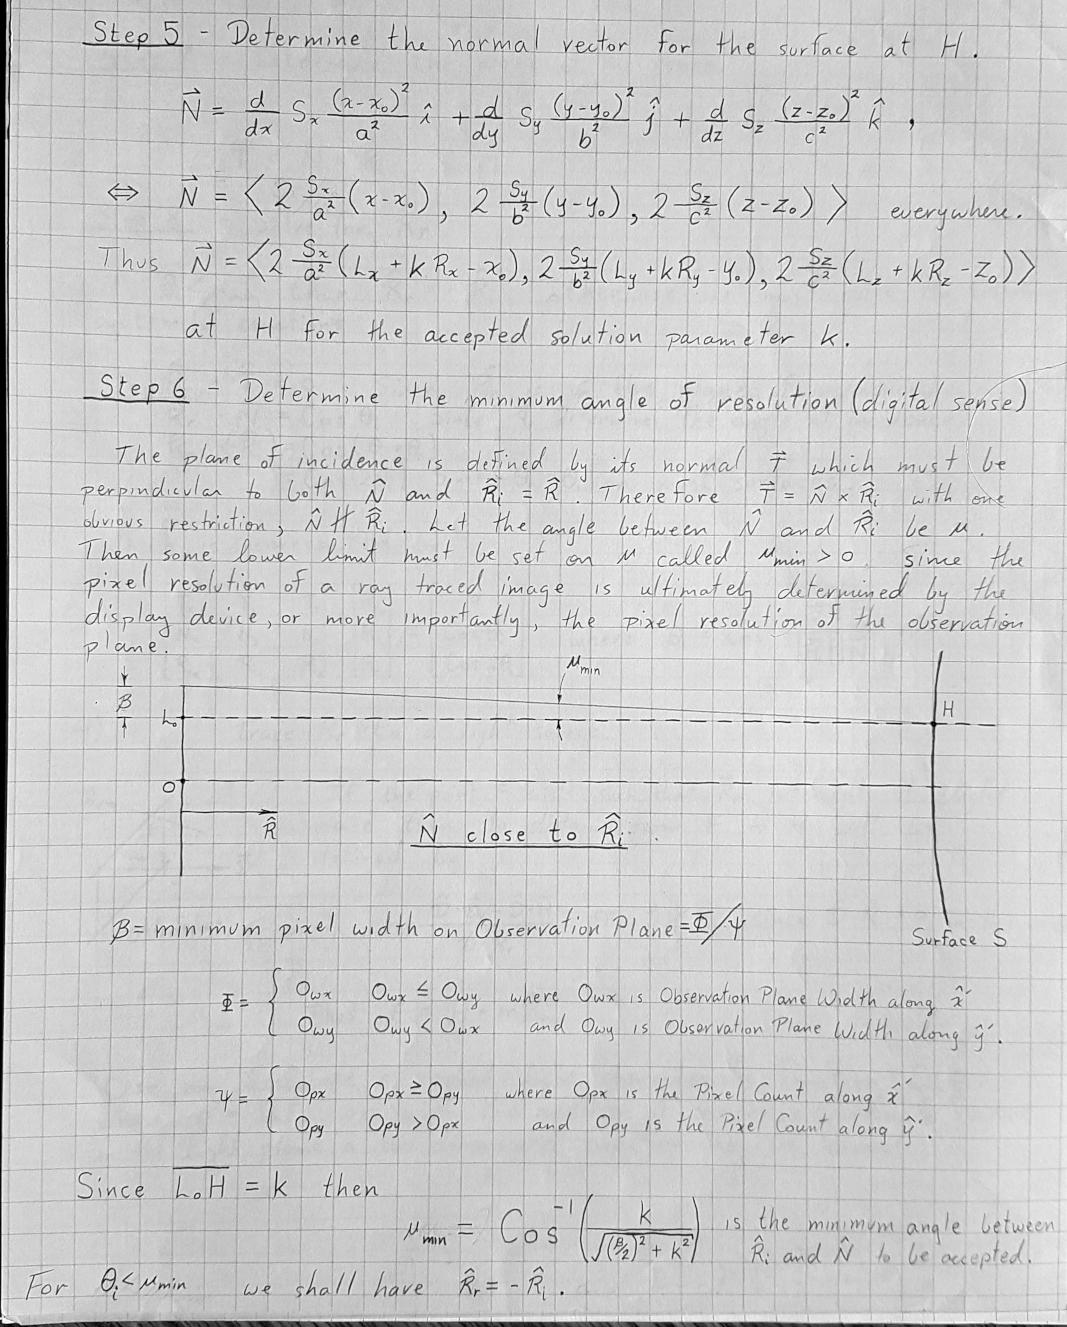 Step 5 - Determine the normal vector for the surface at H.
N⃗ = d/dx Sx (x-x₀)²/a² î + d/dy Sy (y-y₀)²/b² ĵ + d/dz Sz (z-z₀)²/c² k̂ ,
⇔ N⃗ = ⟨2 Sx/a² (x-x₀), 2 Sy/b² (y-y₀), 2 Sz/c² (z-z₀)⟩ everywhere.
Thus N⃗ = ⟨2 Sx/a² (Lx + kRx - x₀), 2 Sy/b² (Ly + kRy - y₀), 2 Sz/c² (Lz + kRz - z₀)⟩
at H for the accepted solution parameter k.
Step 6 - Determine the minimum angle of resolution (digital sense)
The plane of incidence is defined by its normal T⃗ which must be
perpindicular to both N̂ and R̂i = R̂. Therefore T⃗ = N̂ × R̂i with one
obvious restriction, N̂ ∦ R̂i. Let the angle between N̂ and R̂i be μ.
Then some lower limit must be set on μ called μmin > 0 since the
pixel resolution of a ray traced image is ultimately determined by the
display device, or more importantly, the pixel resolution of the observation
plane.
μmin
β
L₀
H
O
R̂
N̂ close to R̂i.
β = minimum pixel width on Observation Plane = Φ/Ψ
Surface S
Φ = { Owx Owx ≤ Owy where Owx is Observation Plane Width along x̂′
Owy Owy < Owx and Owy is Observation Plane Width along ŷ′.
Ψ = { Opx Opx ≥ Opy where Opx is the Pixel Count along x̂′
Opy Opy > Opx and Opy is the Pixel Count along ŷ′.
Since L₀H = k then
μmin = Cos⁻¹(k/√((β/2)² + k²)) is the minimum angle between
R̂i and N̂ to be accepted.
For θi < μmin we shall have R̂r = -R̂i.